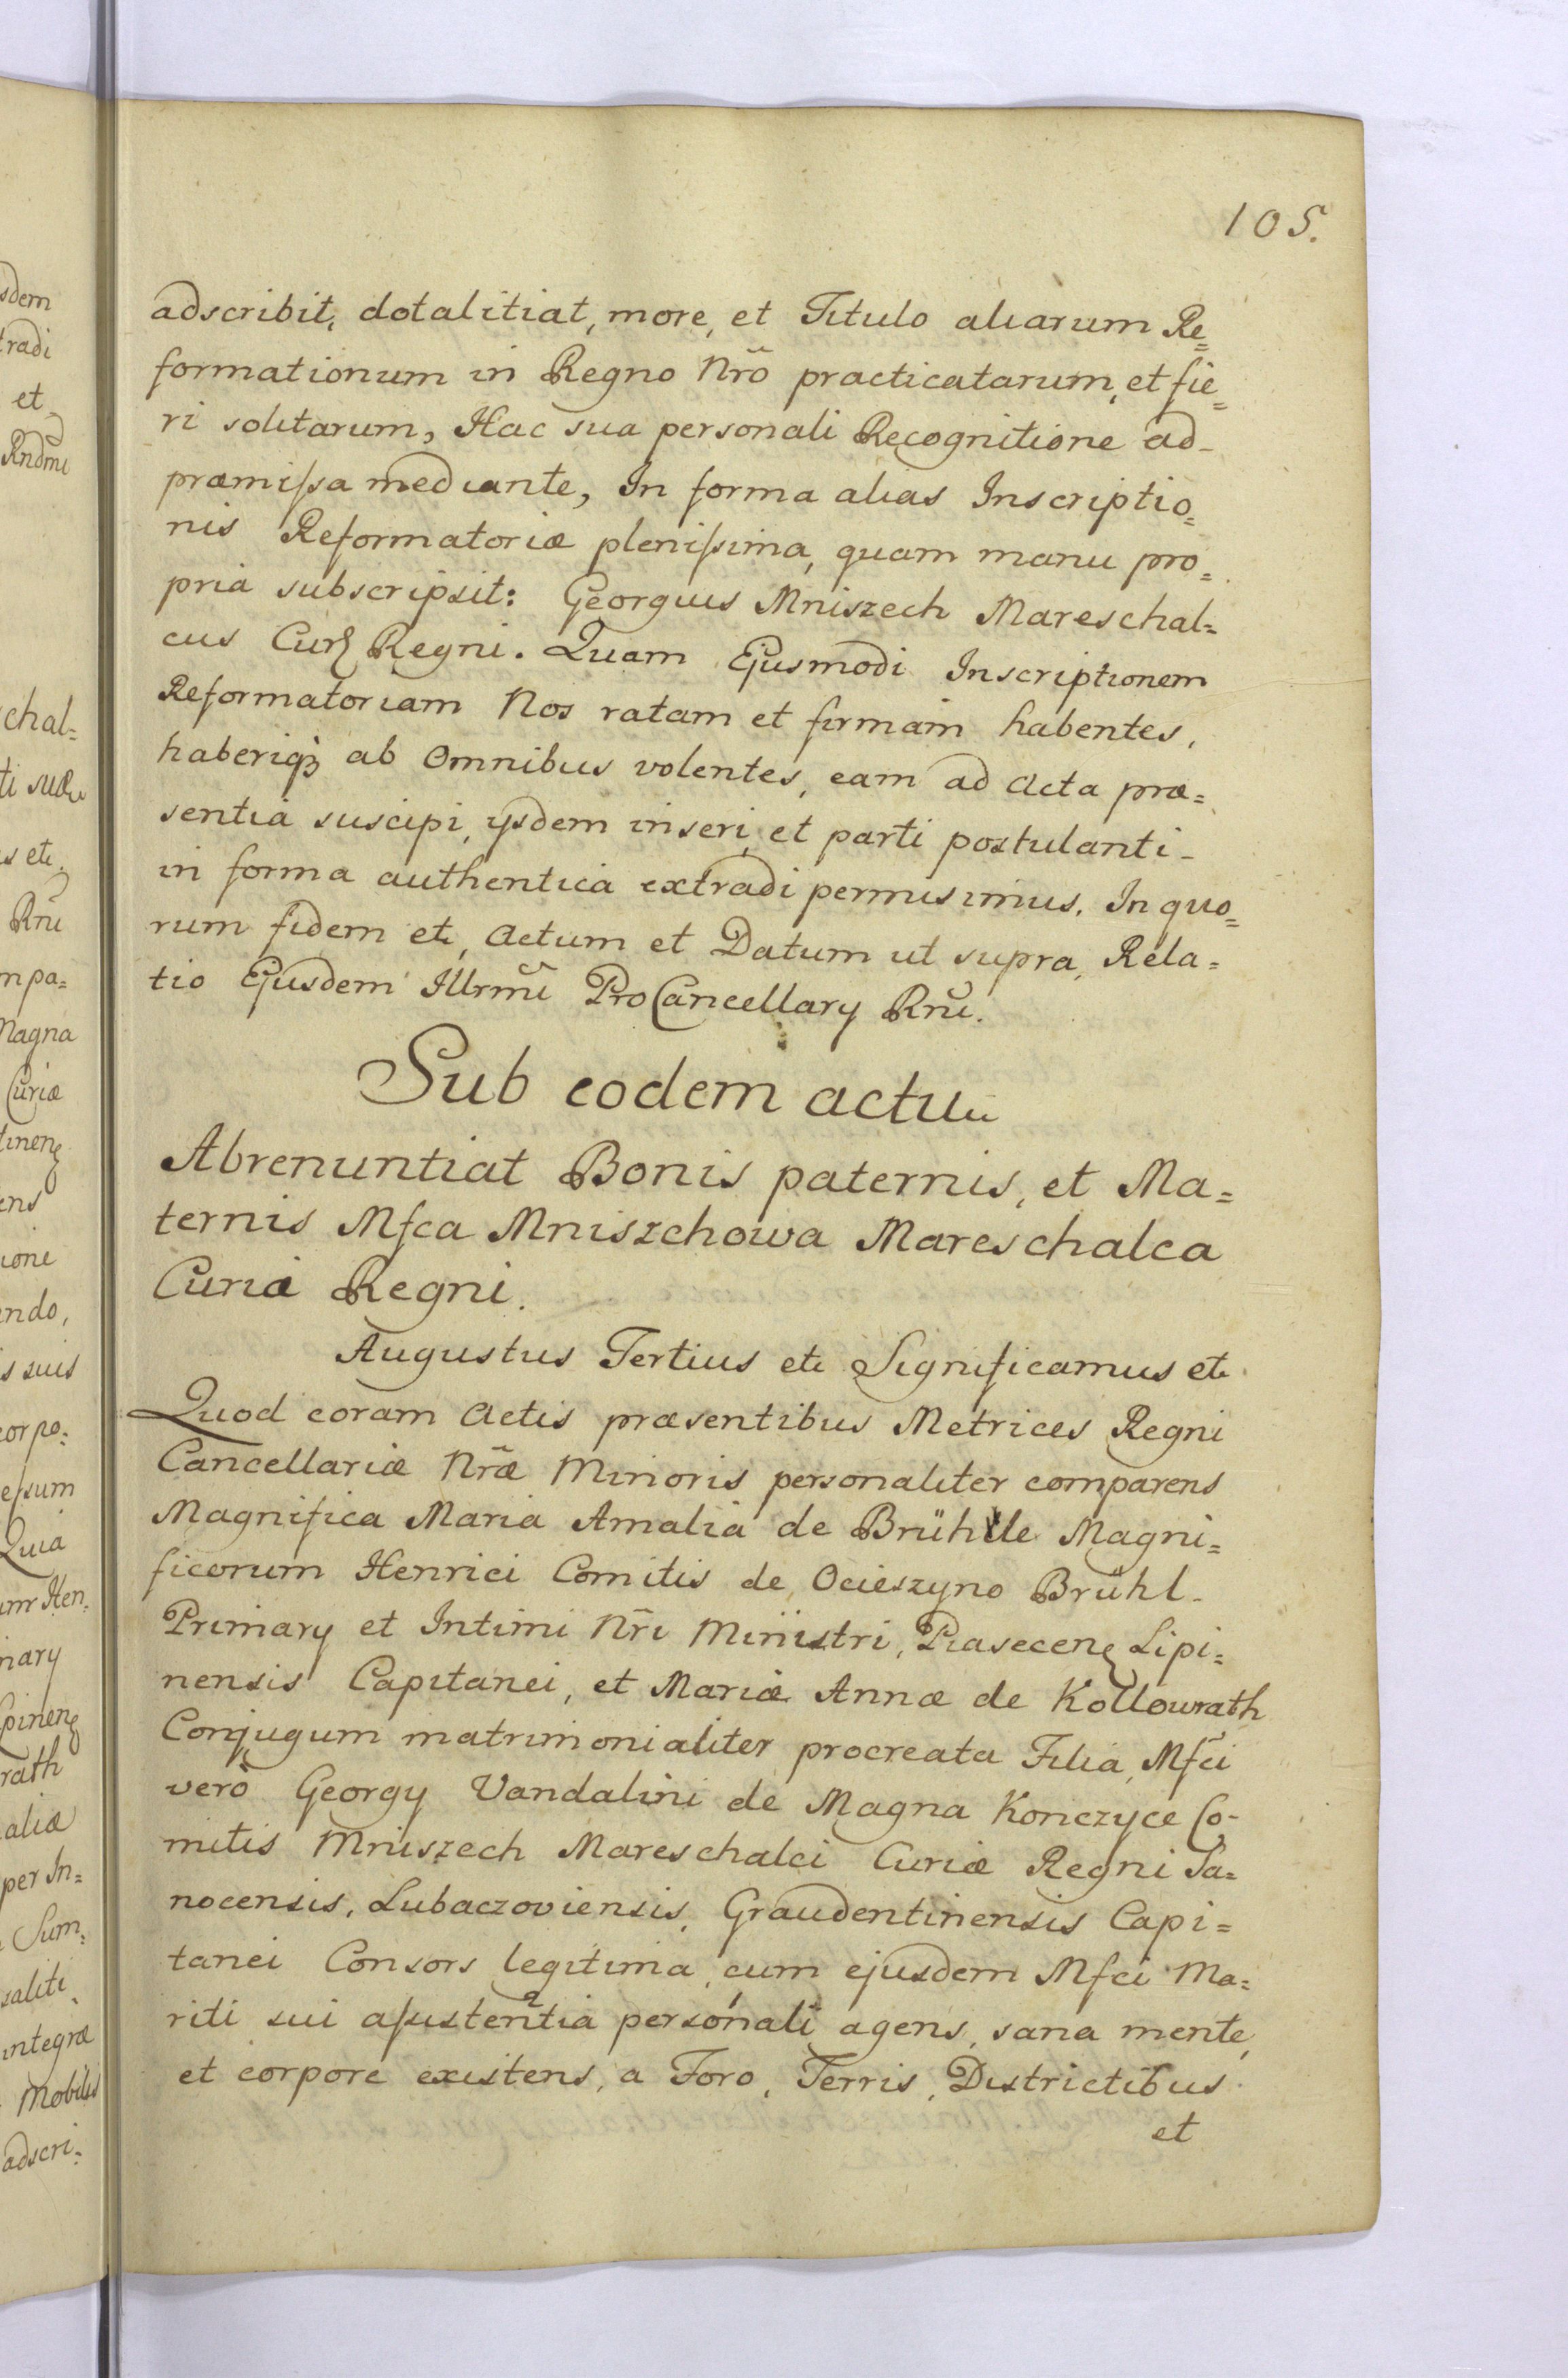 105.
adscribit, dotalitiat, more, et Titulo aliarum Re=
formationum in Regno Nrõ practicatarum, et fie=
ri solitarum, Hac sua personali Recognitione ad-
præmiſsa mediante, In forma alias Inscriptio=
nis Reformatoriæ pleniſsima, quam manu pro=
pria subscripsit: Georgius Mniszech Mareschal=
cus Curę Regni. Quam Ejusmodi Inscriptionem
Reformatoriam Nos ratam et firmam habentes,
haberiqȝ ab Omnibus volentes, eam ad Acta præ=
sentia suscipi, ijsdem inseri, et parti postulanti-
in forma authentica extradi permisimus. In quo=
rum fidem etc, Actum et Datum ut supra, Rela=
tio Ejusdem Illrmĩ ProCancellary Rñi.
Sub eodem actu
Abrenuntiat Bonis paternis, et Ma=
ternis Mfca Mniszchowa Mareschalca
Curiæ Regni.
Augustus Tertius etc Significamus etc
Quod coram Actis præsentibus Metrices Regni
Cancellariæ Nræ Minoris personaliter comparens
Magnifica Maria Amalia de Brühlle Magni=
ficorum Henrici Comitis de Ocieszyno Brühl-
Primary et Intimi Nr̃i Ministri, Piasecenę Lipi=
nensis Capitanei, et Mariæ Annæ de Kollowrath
Conjugum matrimonialiter procreata Filia, Mfci
verò Georgy Vandalini de Magna Kończyce Co-
mitis Mniszech Mareschalci Curiæ Regni Sa=
nocensis, Lubaczoviensis, Graudentinensis Capi=
tanei Consors legitima, cum ejusdem Mfci Ma=
riti sui aſsistentia personali agens, sana mente,
et corpore existens, a Foro, Terris, Districtibus
et
sdem
tradi
et
Rndmi
chal=
ti suæ
s etc
Rñi
mpa=
Magna
Curiæ
tinenę
ens
ione
endo,
is suis
corpo=
eſsum
Quia
Hen=
nary
pinenę
rath
aliæ
per In=
Sum=
saliti
integræ
Mobilis
adscri=